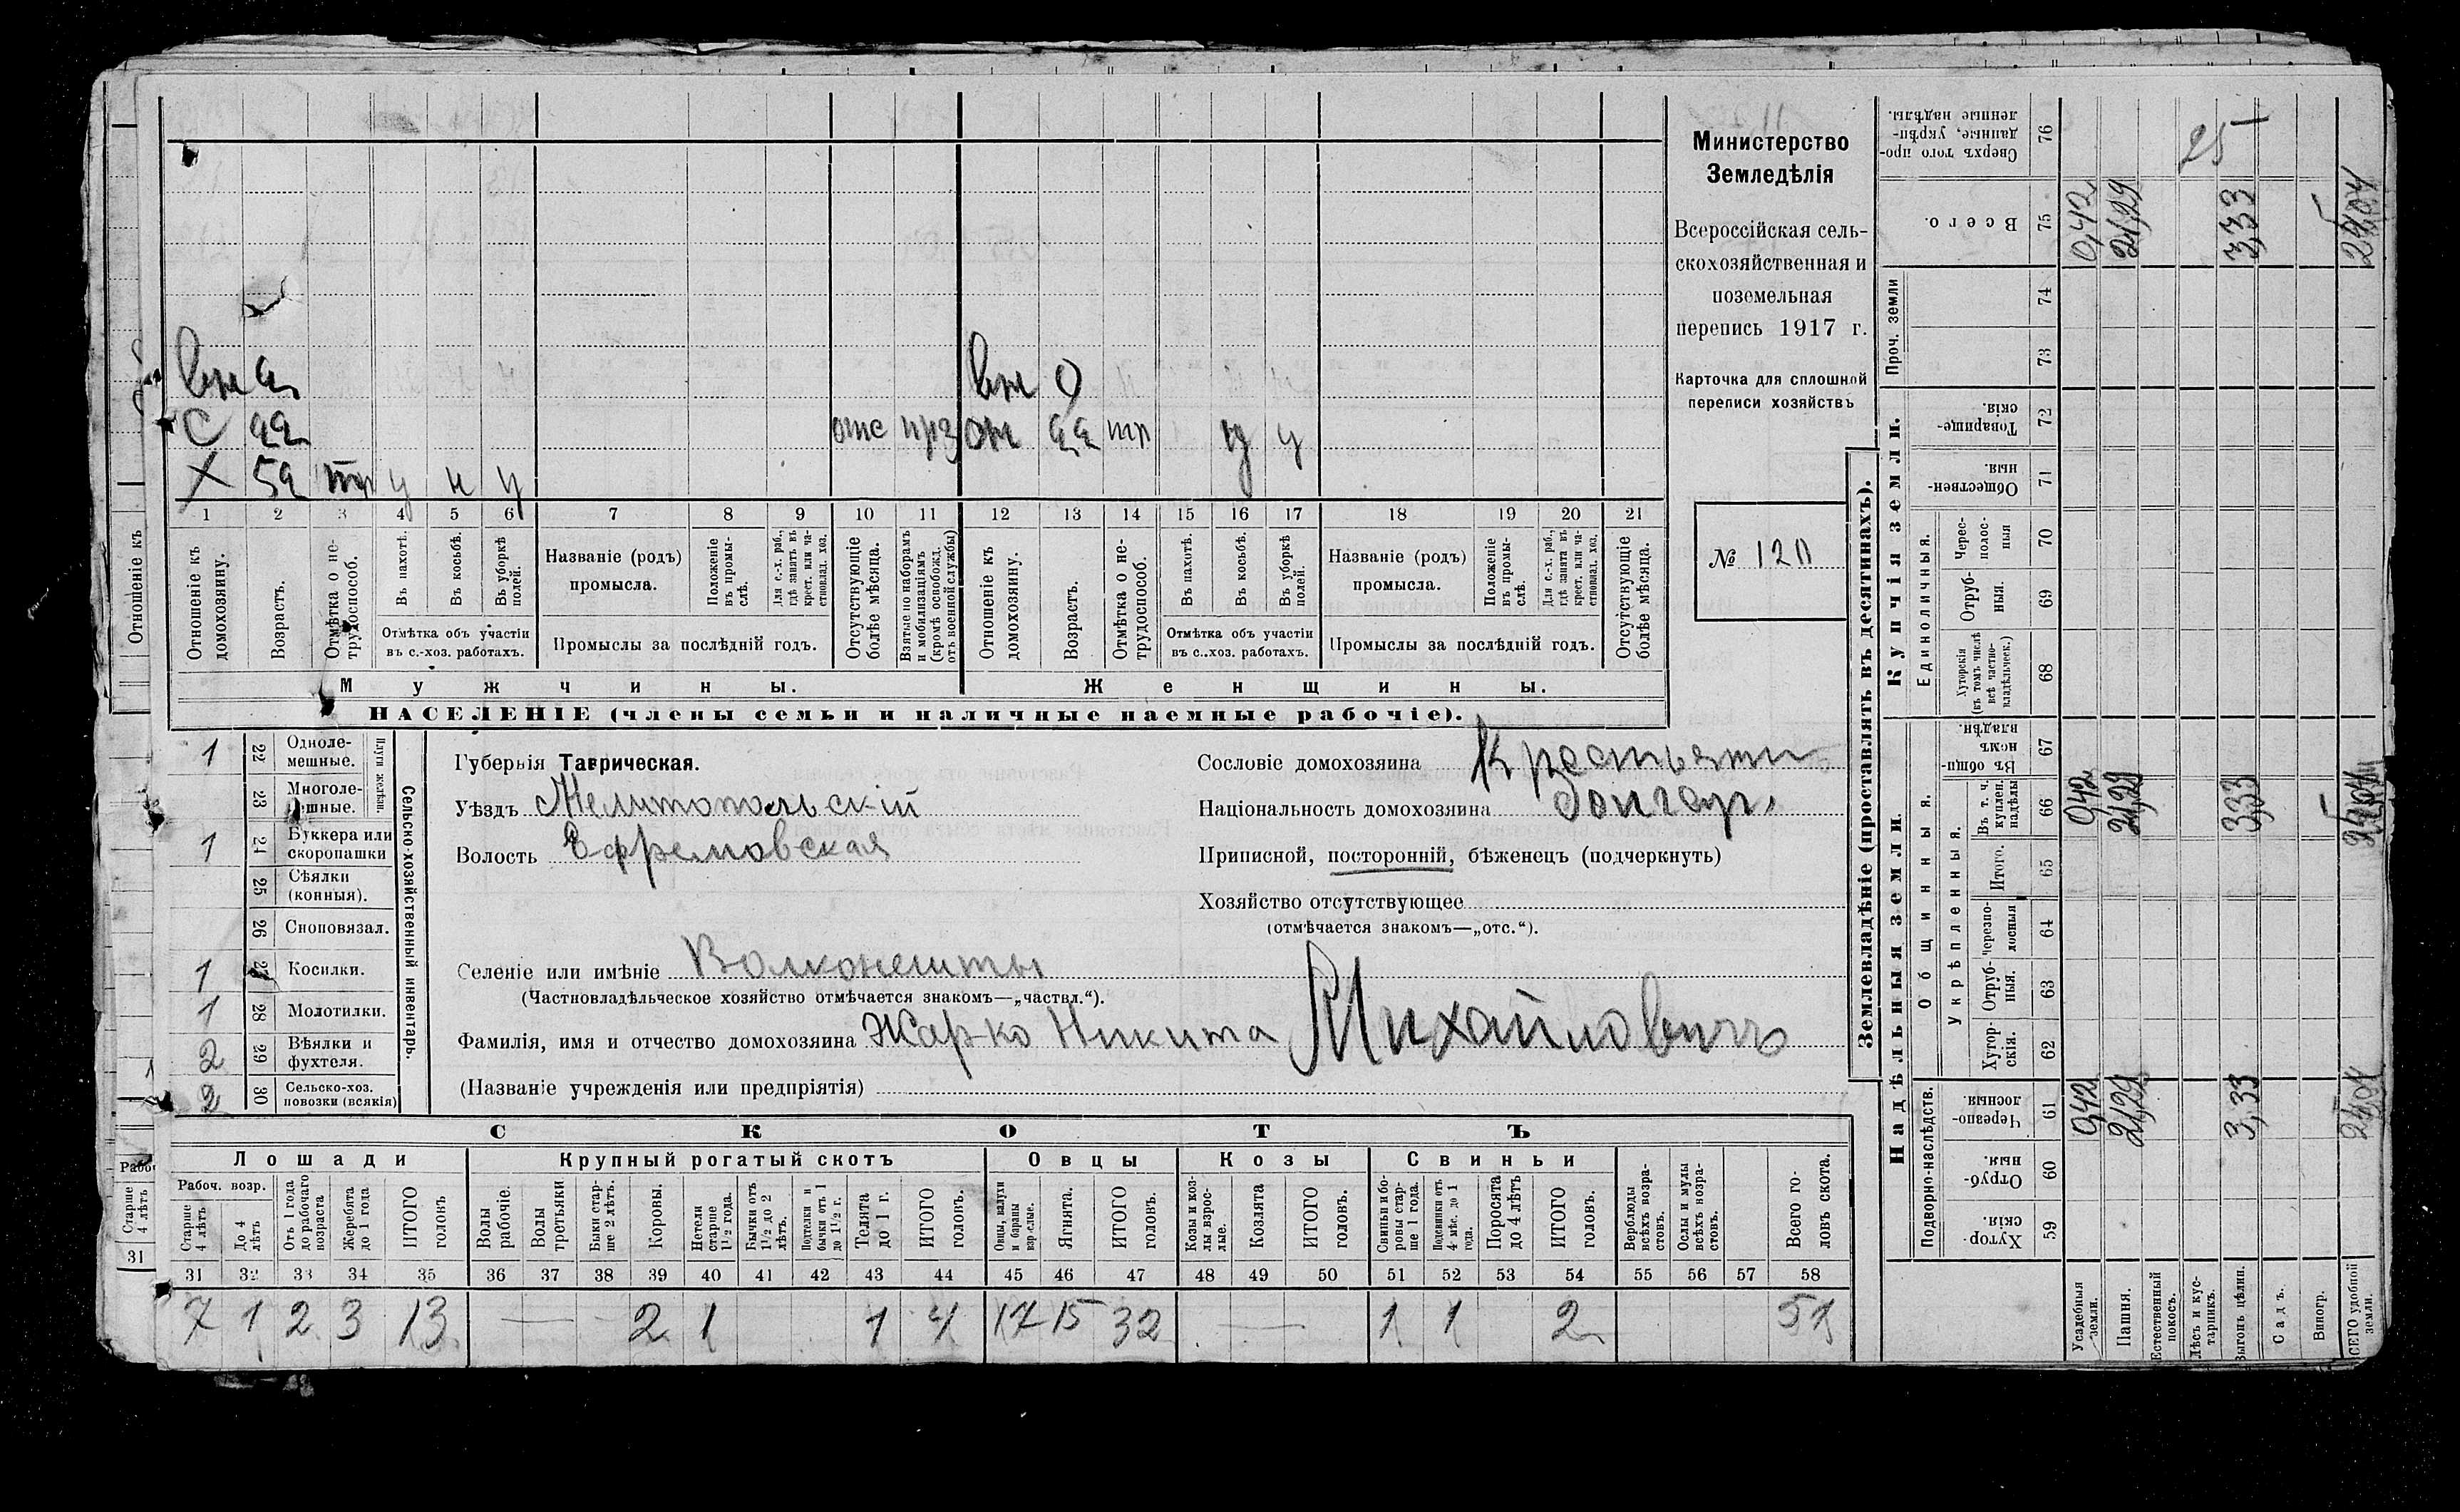 Министерство
Земледѣлія
Всероссійская сель-
скохозяйственная и
поземельная
перепись 1917 г.
Карточка для сплошной
переписи хозяйствъ
№ 120
вн
С
Х тр у н у
отс
вн
1 2 3 4 5 6 7 8 9 10 11 12 13 14 15 16 17 18 19 20 21
Отношеніе къ домохозяину.
Возрастъ.
Отмѣтка о не-трудоспособ.
Въ пахотѣ.
Въ косьбѣ.
Въ уборкѣ полей.
Отмѣтка объ участіи въ с.-хоз. работахъ.
Названіе (родъ) промысла.
Положеніе въ промы-слѣ.
Для с.-х. раб., гдѣ занятъ въ крест. или ча-стновлад. хоз.
Промыслы за послѣдній годъ.
Отсутствующіе болѣе мѣсяца.
Взятые по наборамъ и мобилизаціямъ (кромѣ освобожд. отъ военной службы)
Отношеніе къ домохозяину.
Возрастъ.
Отмѣтка о не-трудоспособ.
Въ пахотѣ.
Въ косьбѣ.
Въ уборкѣ полей.
Отмѣтка объ участіи въ с.-хоз. работахъ.
Названіе (родъ) промысла.
Положеніе въ промы-слѣ.
Для с.-х. раб., гдѣ занята въ крест. или ча-стновлад. хоз.
Промыслы за послѣдній годъ.
Отсутствующіе болѣе мѣсяца.
Мужчины.
Женщины.
НАСЕЛЕНІЕ (члены семьи и наличные наемные рабочіе).
Сельско-хозяйственный инвентарь.
1 22 Одноле-мешные.
23 Многоле-мешные.
1 24 Буккера или скоропашки
25 Сѣялки (конныя).
26 Сноповязал.
1 27 Косилки.
1 28 Молотилки.
2 29 Вѣялки и фухтеля.
2 30 Сельско-хоз. повозки (всякія)
Губернія Таврическая.
Уѣздъ Мелитопольскій
Волость Ефремовская
Селеніе или имѣніе Волконешты
(Частновладѣльческое хозяйство отмѣчается знакомъ—„частвл.“).
Фамилія, имя и отчество домохозяина Жарко Никита Михайловичъ
(Названіе учрежденія или предпріятія)
Сословіе домохозяина Крестьянинъ
Національность домохозяина болгар.
Приписной, посторонній, бѣженецъ (подчеркнуть)
Хозяйство отсутствующее
(отмѣчается знакомъ—„отс.“).
СКОТЪ
Лошади
Крупный рогатый скотъ
Овцы
Козы
Свиньи
Рабоч. возр.
Старше 4 лѣтъ
До 4 лѣтъ
Отъ 1 года до рабочаго возраста
Жеребята до 1 года
ИТОГО головъ
Волы рабочіе.
Волы третьяки
Быки стар-ше 2 лѣтъ.
Коровы.
Нетели старше 1 1/2 года.
Бычки отъ 1 1/2 до 2 лѣтъ.
Подтелки и бычки отъ 1 до 1 1/2 г.
Телята до 1 г.
ИТОГО головъ.
Овцы, валухи и бараны взрослые.
Ягнята.
ИТОГО головъ.
Козы и коз-лы взрос-лые.
Козлята
ИТОГО головъ.
Свиньи и бо-ровы стар-ше 1 года.
Подсвинки отъ 4 мѣс. до 1 года.
Поросята до 4 лѣтъ
ИТОГО головъ.
Верблюды всѣхъ возра-стовъ.
Ослы и мулы всѣхъ возра-стовъ.
Всего го-ловъ скота.
31 32 33 34 35 36 37 38 39 40 41 42 43 44 45 46 47 48 49 50 51 52 53 54 55 56 57 58
7 1 2 3 13 — 2 1 1 4 17 15 32 — 1 1 2 51
Землевладѣніе (проставлять въ десятинахъ).
Купчія земли.
Надѣльныя земли.
Проч. земли
Единоличныя.
Общинныя.
Укрѣпленныя.
Подворно-наслѣдств.
Сверхъ того про-данные, укрѣп-ленные надѣлы. 76 25
Всего. 75 0,42 21,29 3,33
74
73
Товарище-скія. 72
Обществен-ныя. 71
Черес-полос-ныя 70
Отруб-ныя. 69
Хуторскія (въ томъ числѣ всѣ частно-владѣльческ.) 68
Въ общин-номъ владѣн. 67
Въ т. ч. куплен. надѣлы 66 0,42 21,29 3,33
Итого. 65
Черезпо-лосныя 64
Отруб-ныя. 63
Хутор-скія. 62
Черезпо-лосныя 61 0,42 21,29 3,33
Отруб-ныя. 60
Хутор-скія. 59
Усадебныя земли.
Пашня.
Естественный покосъ.
Лѣсъ и кус-тарникъ.
Выгонъ цѣлин.
Садъ.
Виногр.
ВСЕГО удобной земли.
Отношеніе къ
Старше 4 лѣтъ
31